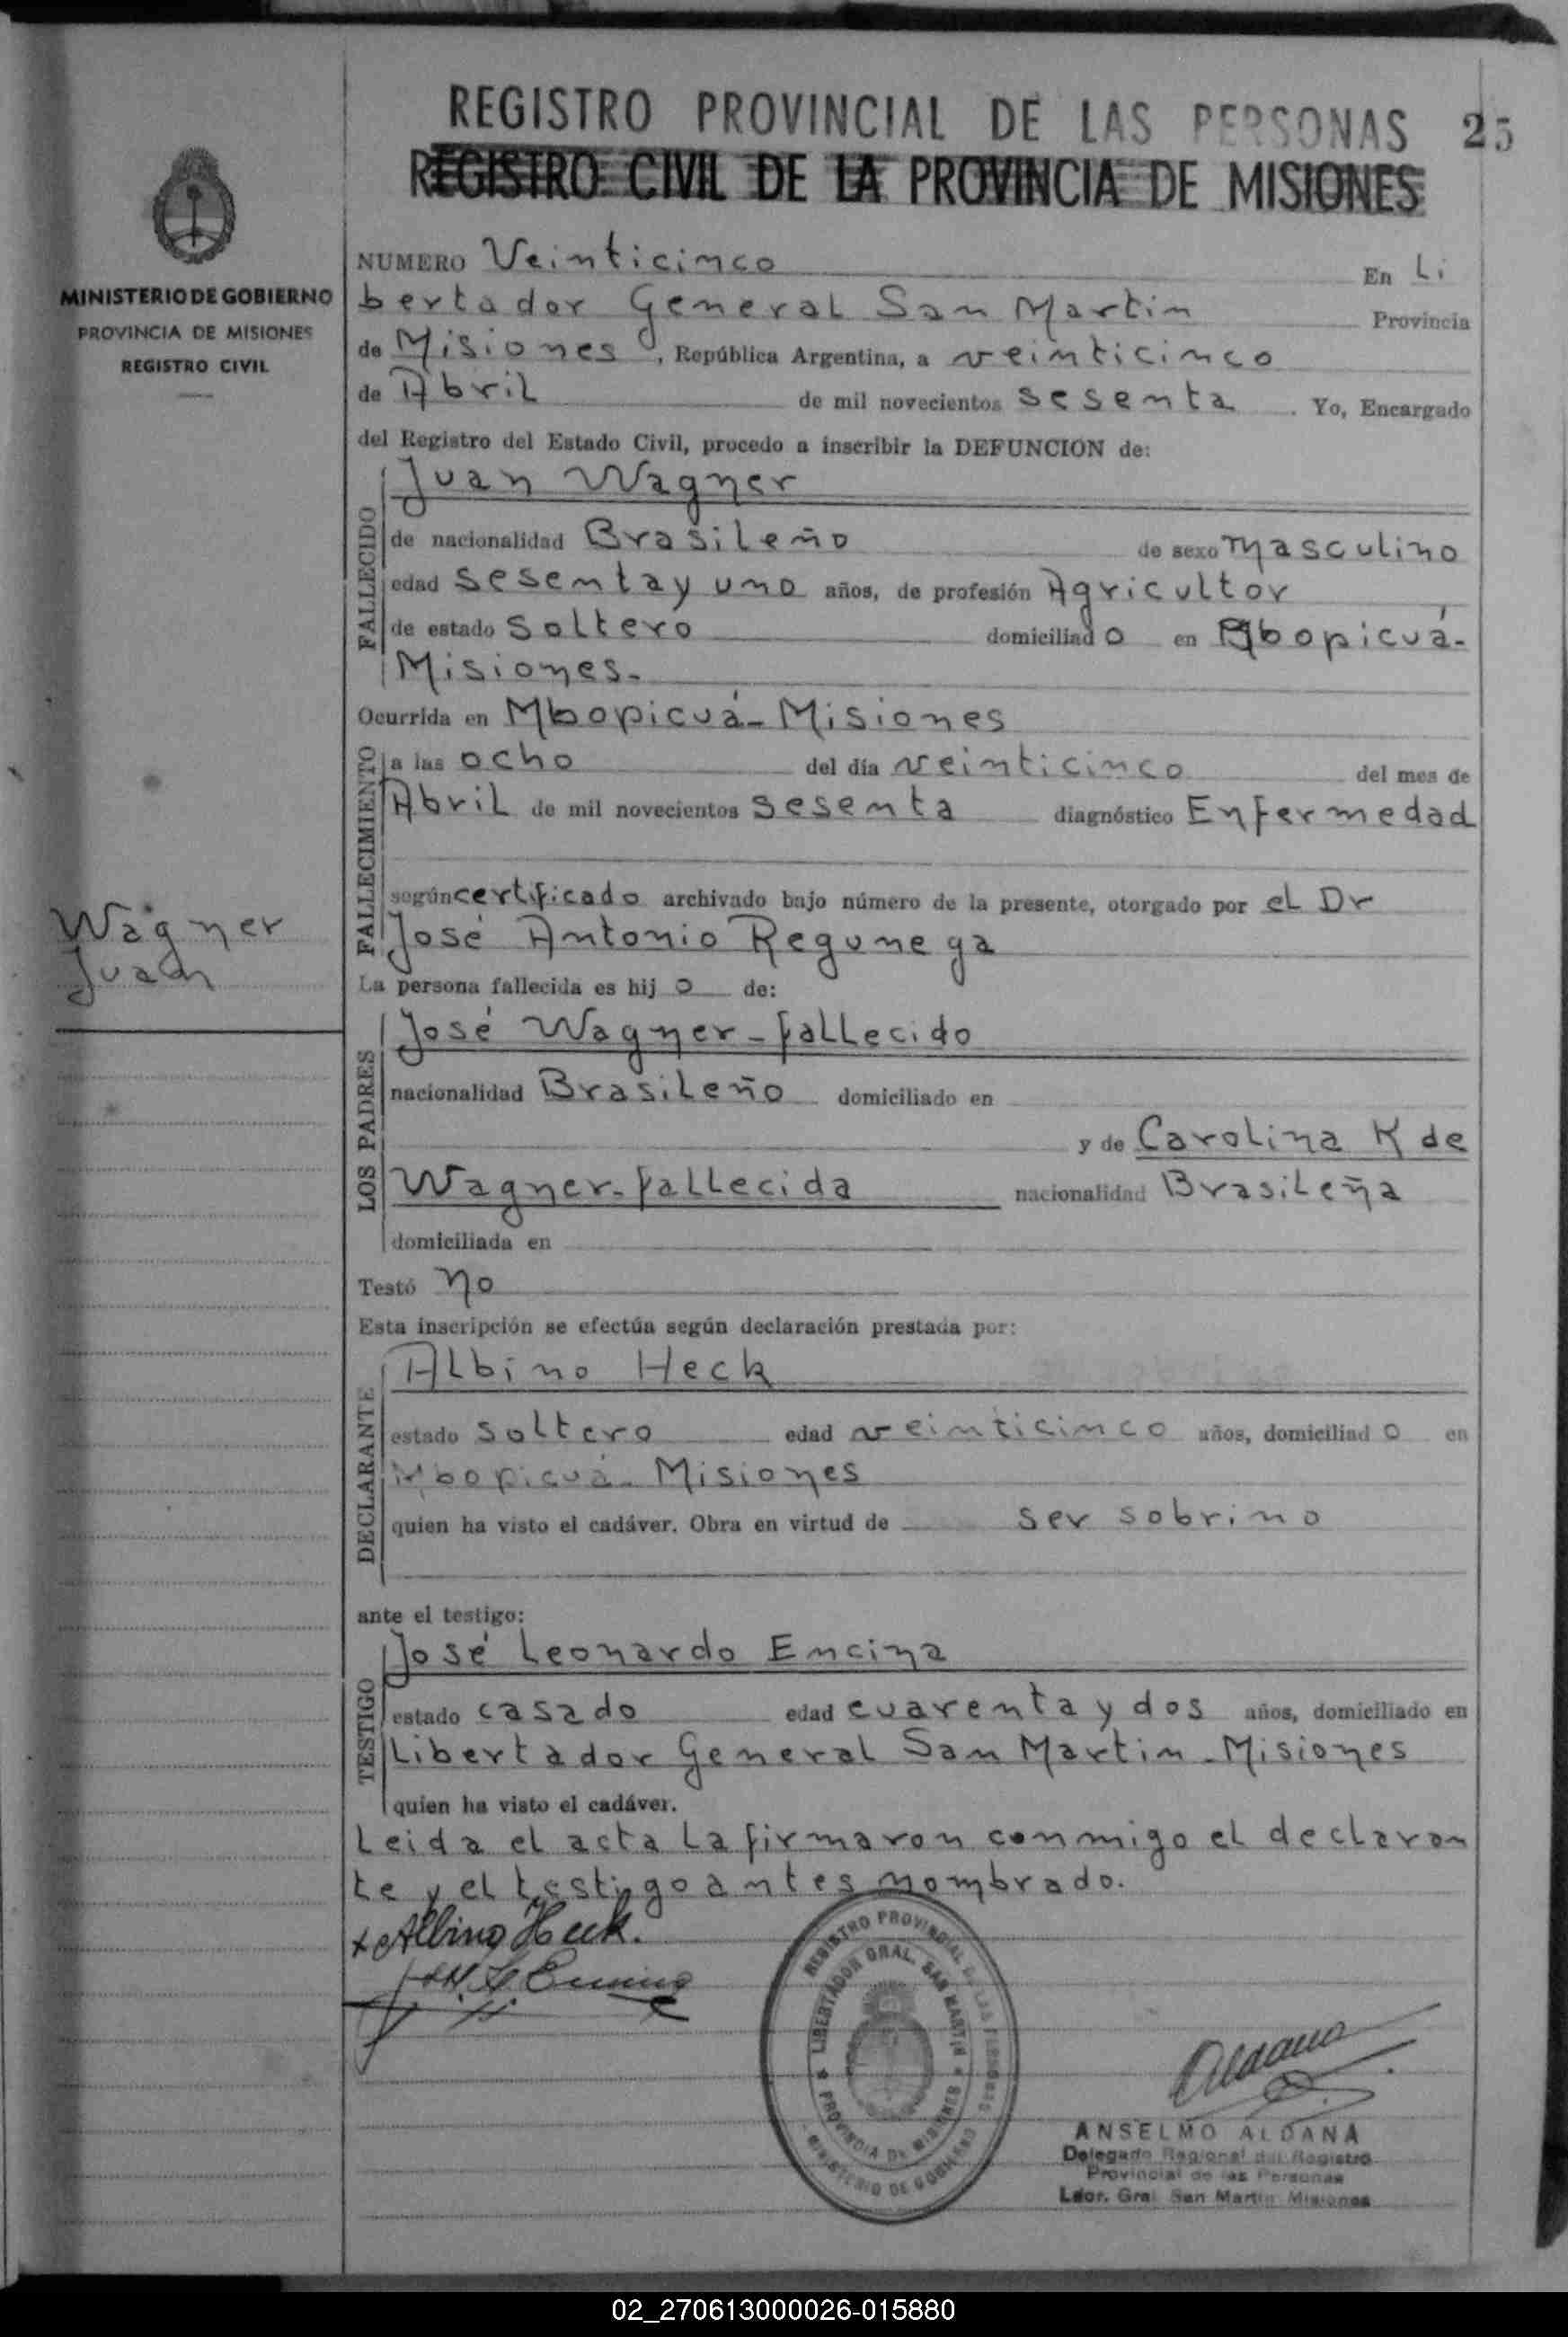 REGISTRO PROVINCIAL DE LAS PERSONAS 25
REGISTRO CIVIL DE LA PROVINCIA DE MISIONES
MINISTERIO DE GOBIERNO
PROVINCIA DE MISIONES
REGISTRO CIVIL
NUMERO Veinticinco En Li
bertador General San Martin Provincia
de Misiones, República Argentina, a veinticinco
de Abril de mil novecientos sesenta. Yo, Encargado
del Registro del Estado Civil, procedo a inscribir la DEFUNCION de:
FALLECIDO
Juan Wagner
de nacionalidad Brasileño de sexo masculino
edad sesenta y uno años, de profesión Agricultor
de estado soltero domiciliado en Mbopicuá-
Misiones.-
Ocurrida en Mbopicuá-Misiones
FALLECIMIENTO
a las ocho del día veinticinco del mes de
Abril de mil novecientos sesenta diagnóstico Enfermedad
según certificado archivado bajo número de la presente, otorgado por el Dr
José Antonio Regunega
Wagner
Juan
La persona fallecida es hijo de:
LOS PADRES
José Wagner-fallecido
nacionalidad Brasileño domiciliado en
y de Carolina K de
Wagner-fallecida nacionalidad Brasileña
domiciliada en
Testó no
Esta inscripción se efectúa según declaración prestada por:
DECLARANTE
Albino Heck
estado soltero edad veinticinco años, domiciliado en
Mbopicuá-Misiones
quien ha visto el cadáver. Obra en virtud de ser sobrino
ante el testigo:
TESTIGO
José Leonardo Encina
estado casado edad cuarenta y dos años, domiciliado en
Libertador General San Martin-Misiones
quien ha visto el cadáver.
Leida el acta la firmaron conmigo el declaran
te y el testigo antes nombrado.
Albino Heck.
REGISTRO PROVINCIAL DE LAS PERSONAS
LIBERTADOR GRAL. SAN MARTIN
PROVINCIA DE MISIONES
MINISTERIO DE GOBIERNO
Aldana
ANSELMO ALDANA
Delegado Regional del Registro
Provincial de las Personas
Ldor. Gral San Martin Misiones
02_270613000026-015880